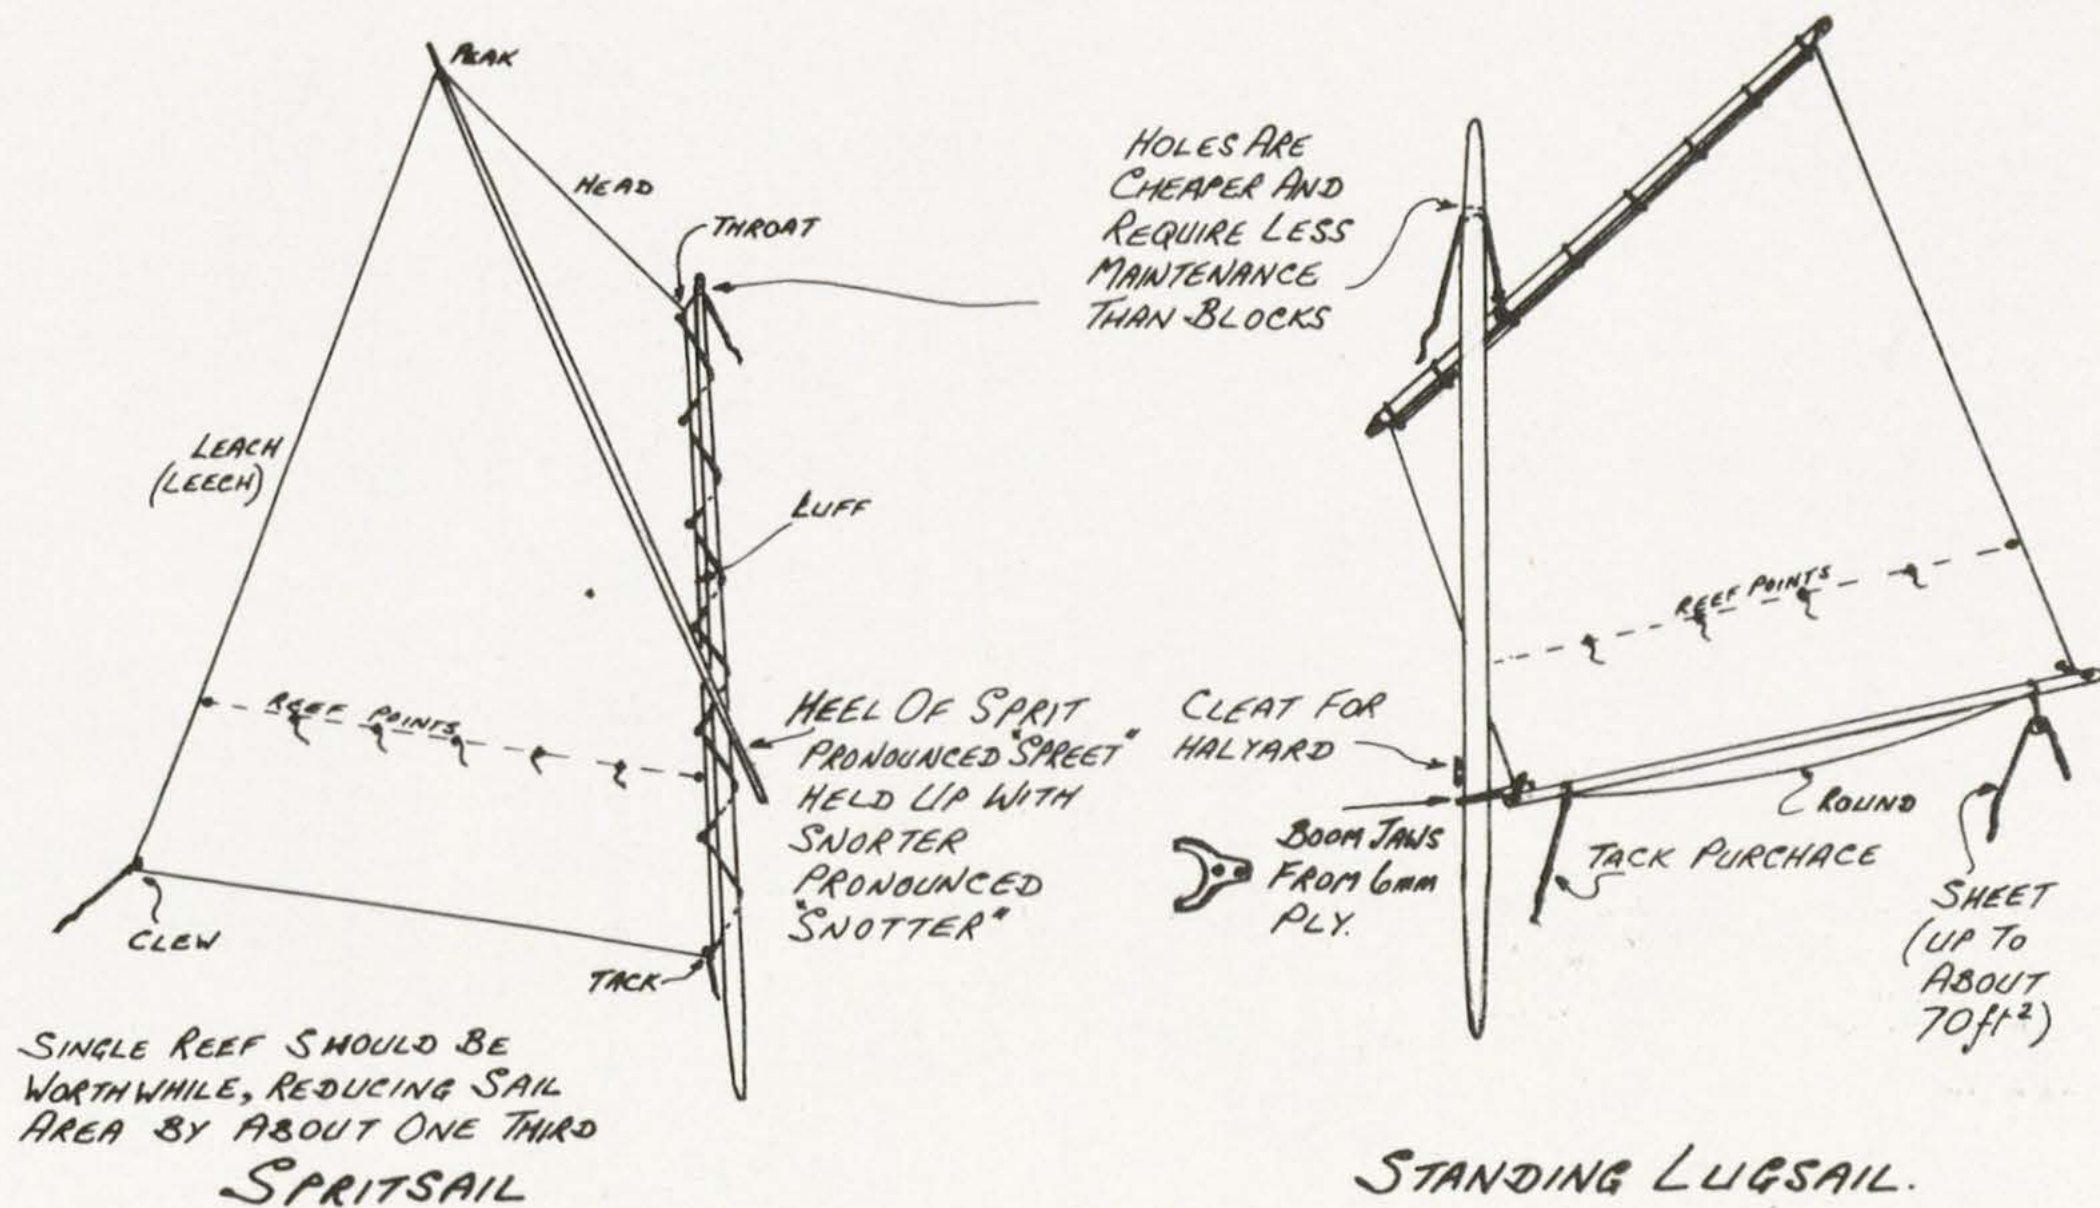 PEAK
HEAD
THROAT
LEACH
(LEECH)
LUFF
REEF POINTS
HEEL OF SPRIT
PRONOUNCED "SPREET"
HELD UP WITH
SNORTER
PRONOUNCED
"SNOTTER"
CLEW
TACK
SINGLE REEF SHOULD BE
WORTHWHILE, REDUCING SAIL
AREA BY ABOUT ONE THIRD
SPRITSAIL
HOLES ARE
CHEAPER AND
REQUIRE LESS
MAINTENANCE
THAN BLOCKS
REEF POINTS
CLEAT FOR
HALYARD
BOOM JAWS
FROM 6mm
PLY.
ROUND
TACK PURCHACE
SHEET
(UP TO
ABOUT
70ft²)
STANDING LUGSAIL.